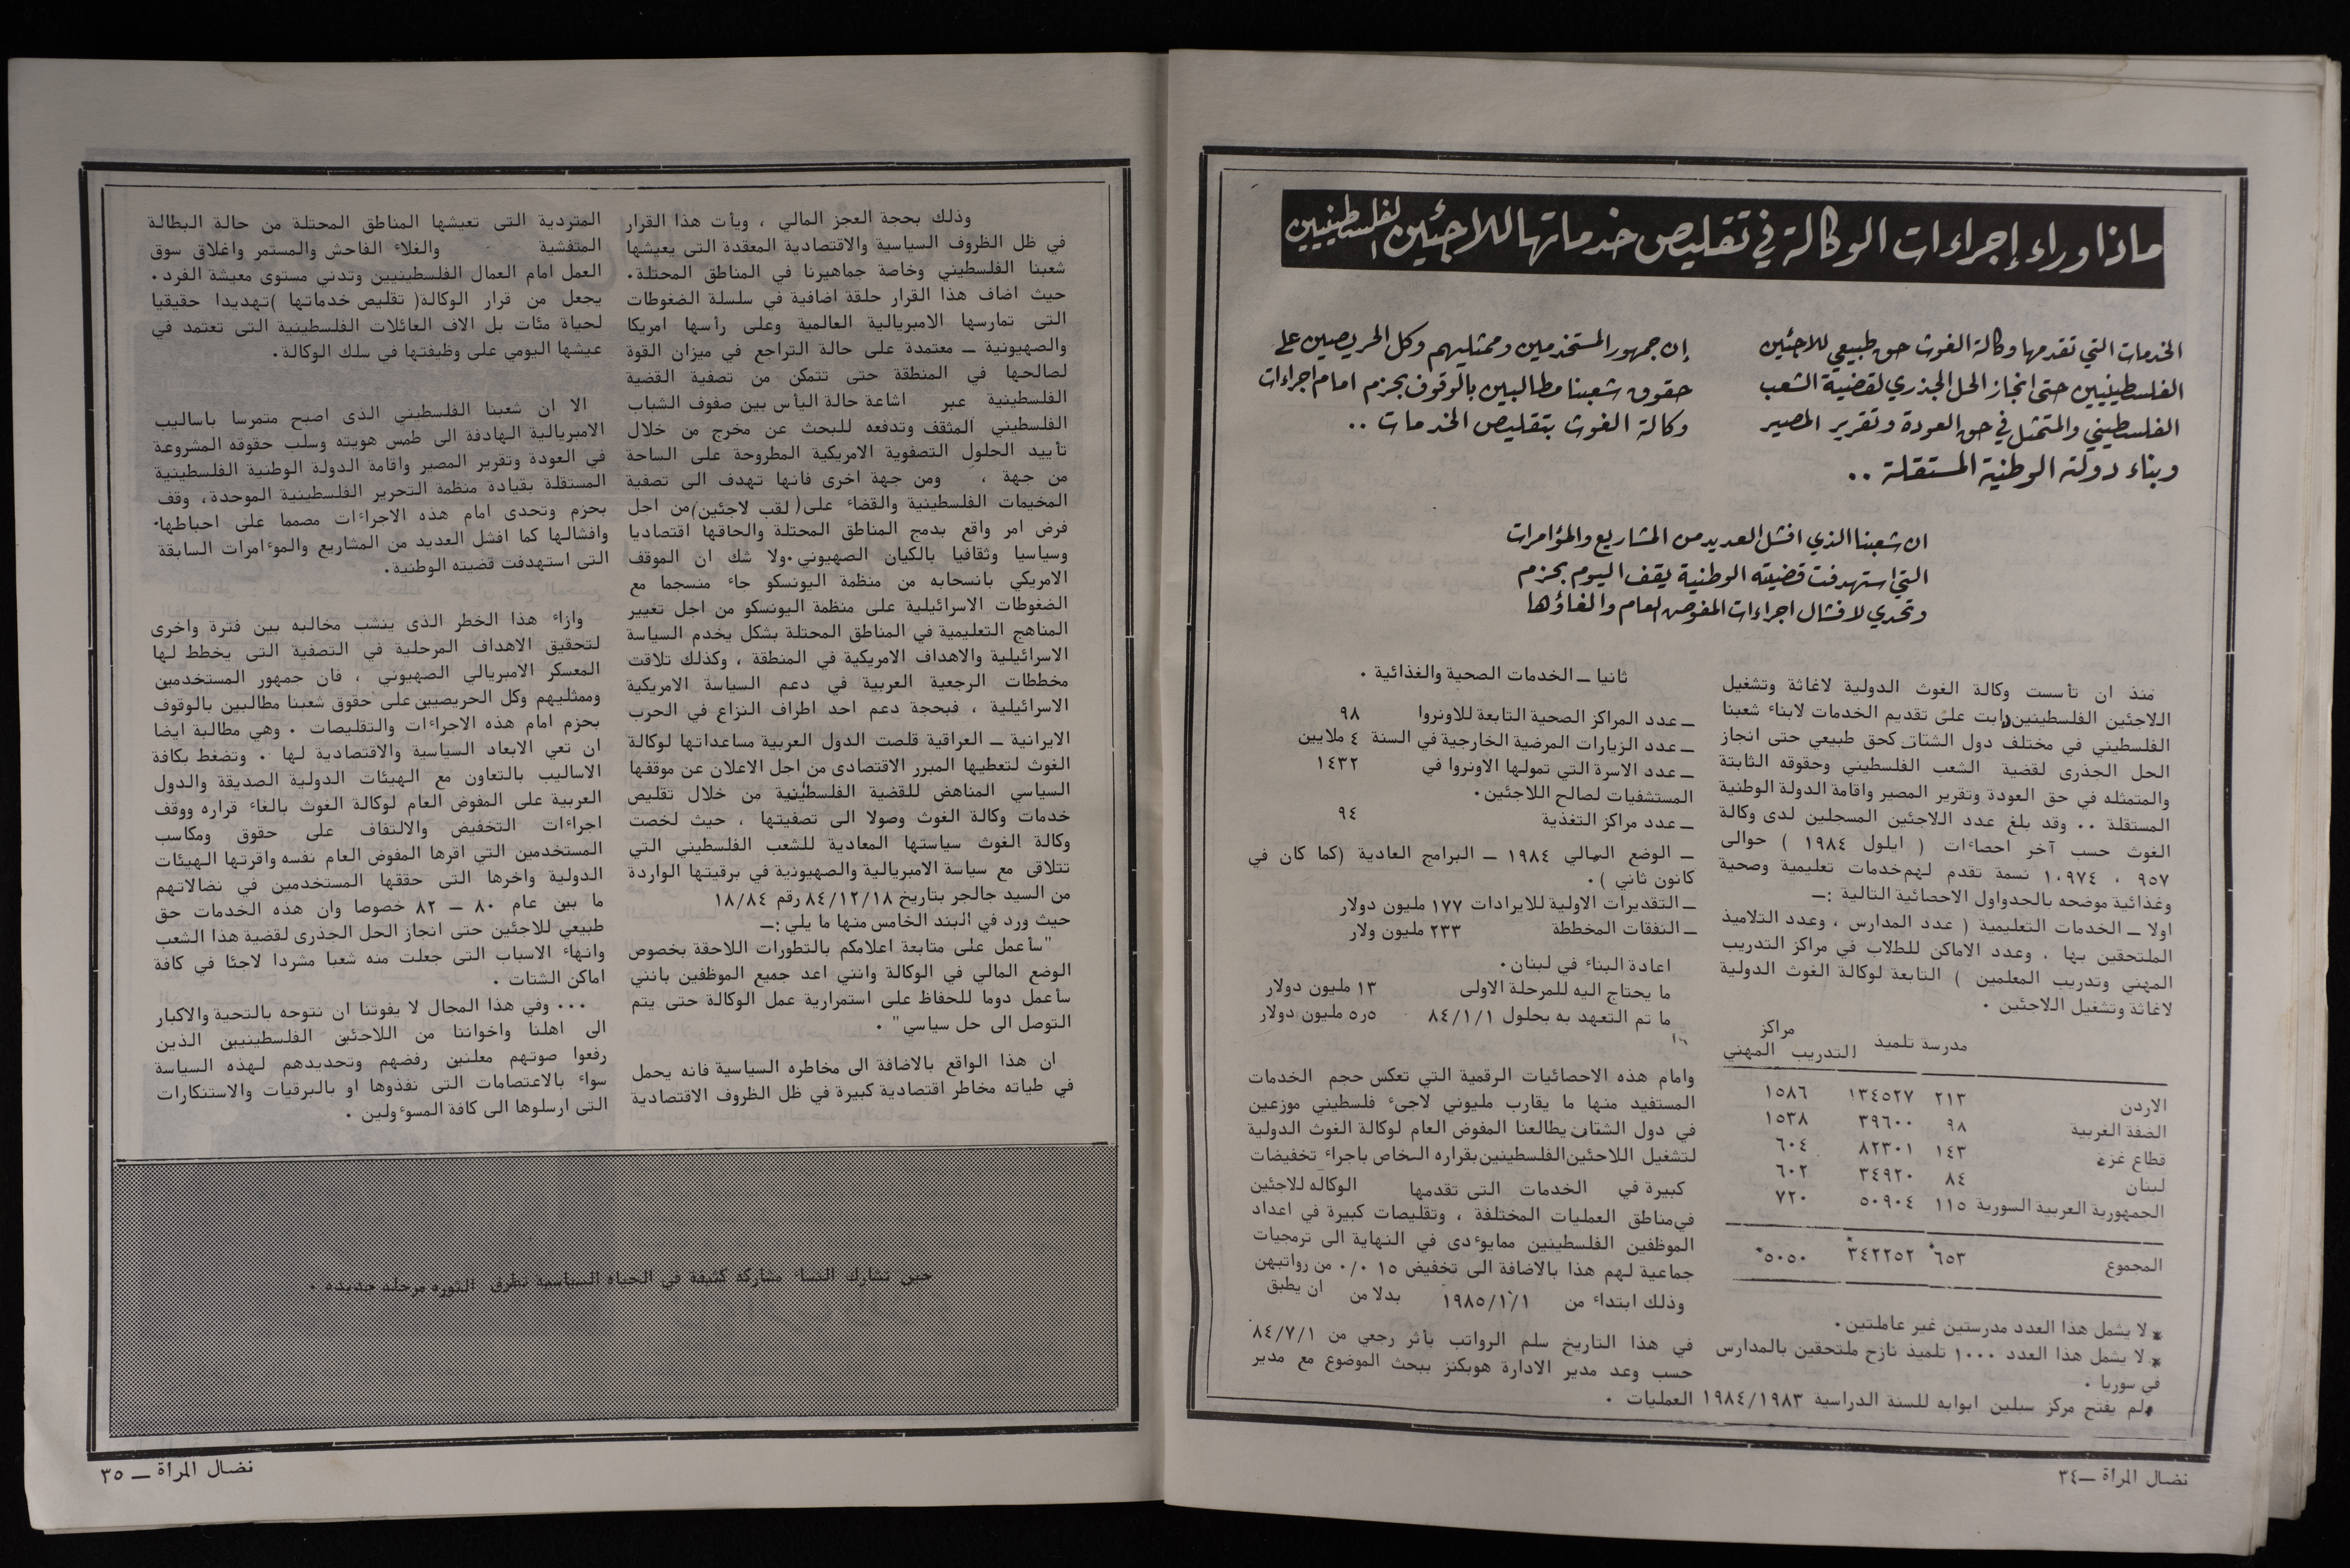 ماذا وراء إجراءات الوكالة في تقليص خدماتها للاجئين الفلسطينيين
الخدمات التي تقدمها وكالة الغوث حق طبيعي للاجئين
الفلسطينيين حتى انجاز الحل الجذري لقضية الشعب
الفلسطيني والمتمثل في حق العودة وتقرير المصير
وبناء دولته الوطنية المستقلة ..
إن جمهور المستخدمين وممثليهم وكل الحريصين على
حقوق شعبنا مطالبين بالوقوف بحزم امام اجراءات
وكالة الغوث بتقليص الخدمات ..
ان شعبنا الذي افشل العديد من المشاريع والمؤامرات
التي استهدفت قضيته الوطنية يقف اليوم بحزم
وتحدي لافشال اجراءات المفوض العام والغاؤها
منذ ان تأسست وكالة الغوث الدولية لاغاثة وتشغيل
اللاجئين الفلسطينين دابت على تقديم الخدمات لابناء شعبنا
الفلسطيني في مختلف دول الشتات كحق طبيعي حتى انجاز
الحل الجذرى لقضية الشعب الفلسطيني وحقوقه الثابتة
والمتمثله في حق العودة وتقرير المصير واقامة الدولة الوطنية
المستقلة .. وقد بلغ عدد اللاجئين المسجلين لدى وكالة
الغوث حسب آخر احصاءات ( ايلول ١٩٨٤ ) حوالى
٩٥٧ ، ١٠٩٧٤ نسمة تقدم لهم خدمات تعليمية وصحية
وغذائية موضحه بالجدواول الاحصائية التالية :ــ
اولا ــ الخدمات التعليمية ( عدد المدارس ، وعدد التلاميذ
الملتحقين بها ، وعدد الاماكن للطلاب في مراكز التدريب
المهني وتدريب المعلمين ) التابعة لوكالة الغوث الدولية
لاغاثة وتشغيل اللاجئين .
مدرسة تلميذ مراكز التدريب المهني
الاردن ٢١٣ ١٣٤٥٢٧ ١٥٨٦
الضفة الغربية ٩٨ ٣٩٦٠٠ ١٥٣٨
قطاع غزة ١٤٣ ٨٢٣٠١ ٦٠٤
لبنان ٨٤ ٣٤٩٢٠ ٦٠٢
الجمهورية العربية السورية ١١٥ ٥٠٩٠٤ ٧٢٠
المجموع ٦٥٣* ٣٤٢٢٥٢* ٥٠٥٠*
* لا يشمل هذا العدد مدرستين غير عاملتين.
* لا يشمل هذا العدد ١٠٠٠ تلميذ نازح ملتحقين بالمدارس
في سوريا .
*لم يفتح مركز سبلين ابوابه للسنة الدراسية ١٩٨٤/١٩٨٣
ثانيا ــ الخدمات الصحية والغذائية .
ــ عدد المراكز الصحية التابعة للاونروا ٩٨
ــ عدد الزيارات المرضية الخارجية في السنة ٤ ملايين
ــ عدد الاسرة التي تمولها الاونروا في ١٤٣٢
المستشفيات لصالح اللاجئين.
ــ عدد مراكز التغذية ٩٤
ــ الوضع المالي ١٩٨٤ ــ البرامج العادية (كما كان في
كانون ثاني ).
ــ التقديرات الاولية للايرادات ١٧٧ مليون دولار
ــ النفقات المخططة ٢٣٣ مليون ولار
اعادة البناء في لبنان.
ما يحتاج اليه للمرحلة الاولى ١٣ مليون دولار
ما تم التعهد به بحلول ٨٤/١/١ ٥ر٥ مليون دولار
وامام هذه الاحصائيات الرقمية التي تعكس حجم الخدمات
المستفيد منها ما يقارب مليوني لاجىء فلسطيني موزعين
في دول الشتات يطالعنا المفوض العام لوكالة الغوث الدولية
لتشغيل اللاجئين الفلسطينين بقراره الخاص باجراء تخفيضات
كبيرة في الخدمات التى تقدمها الوكاله للاجئين
في مناطق العمليات المختلفة ، وتقليصات كبيرة في اعداد
الموظفين الفلسطينين ممايوءدى في النهاية الى ترمجيات
جماعية لهم هذا بالاضافة الى تخفيض ١٥ ٠/٠ من رواتبهن
وذلك ابتداء من ١٩٨٥/١/١ بدلا من ان يطبق
في هذا التاريخ سلم الرواتب بأثر رجعي من ٨٤/٧/١
حسب وعد مدير الادارة هوبكنز ببحث الموضوع مع مدير
العمليات .
نضال المرأة ــ٣٤
وذلك بحجة العجز المالي ، ويأت هذا القرار
في ظل الظروف السياسية والاقتصادية المعقدة التى يعيشها
شعبنا الفلسطيني وخاصة جماهيرنا في المناطق المحتلة.
حيث اضاف هذا القرار حلقة اضافية في سلسلة الضغوطات
التى تمارسها الامبريالية العالمية وعلى رأسها امريكا
والصهيونية ــ معتمدة على حالة التراجع في ميزان القوة
لصالحها في المنطقة حتى تتمكن من تصفية القضية
الفلسطينية عبر اشاعة حالة اليأس بين صفوف الشباب
الفلسطيني المثقف وتدفعه للبحث عن مخرج من خلال
تأييد الحلول التصفوية الامريكية المطروحة على الساحة
من جهة ، ومن جهة اخرى فانها تهدف الى تصفية
المخيمات الفلسطينية والقضاء على( لقب لاجئين)من اجل
فرض امر واقع بدمج المناطق المحتلة والحاقها اقتصاديا
وسياسيا وثقافيا بالكيان الصهيوني.ولا شك ان الموقف
الامريكي بانسحابه من منظمة اليونسكو جاء منسجما مع
الضغوطات الاسرائيلية على منظمة اليونسكو من اجل تغيير
المناهج التعليمية في المناطق المحتلة بشكل يخدم السياسة
الاسرائيلية والاهداف الامريكية في المنطقة ، وكذلك تلاقت
مخططات الرجعية العربية في دعم السياسة الامريكية
الاسرائيلية ، فبحجة دعم احد اطراف النزاع في الحرب
الايرانية ــ العراقية قلصت الدول العربية مساعداتها لوكالة
الغوث لتعطيها المبرر الاقتصادى من اجل الاعلان عن موقفها
السياسي المناهض للقضية الفلسطينية من خلال تقليص
خدمات وكالة الغوث وصولا الى تصفيتها ، حيث لخصت
وكالة الغوث سياستها المعادية للشعب الفلسطيني التي
تتلاقى مع سياسة الامبريالية والصهيونية في برقيتها الواردة
من السيد جالجر بتاريخ ٨٤/١٢/١٨ رقم ١٨/٨٤
حيث ورد في البند الخامس منها ما يلي :ــ
"سأعمل على متابعة اعلامكم بالتطورات اللاحقة بخصوص
الوضع المالي في الوكالة وانني اعد جميع الموظفين بانني
سأعمل دوما للحفاظ على استمرارية عمل الوكالة حتى يتم
التوصل الى حل سياسي" .
ان هذا الواقع بالاضافة الى مخاطره السياسية فانه يحمل
في طياته مخاطر اقتصادية كبيرة في ظل الظروف الاقتصادية
المتردية التى تعيشها المناطق المحتلة من حالة البطالة
المتفشية والغلاء الفاحش والمستمر واغلاق سوق
العمل امام العمال الفلسطينيين وتدني مستوى معيشة الفرد.
يجعل من قرار الوكالة( تقليص خدماتها )تهديدا حقيقيا
لحياة مئات بل الاف العائلات الفلسطينية التى تعتمد في
عيشها اليومي على وظيفتها في سلك الوكالة.
الا ان شعبنا الفلسطيني الذى اصبح متمرسا باساليب
الامبريالية الهادفة الى طمس هويته وسلب حقوقه المشروعة
في العودة وتقرير المصير واقامة الدولة الوطنية الفلسطينية
المستقلة بقيادة منظمة التحرير الفلسطينية الموحدة، وقف
بحزم وتحدى امام هذه الاجراءات مصمما على احباطها
وافشالها كما افشل العديد من المشاريع والموءامرات السابقة
التى استهدفت قضيته الوطنية.
وازاء هذا الخطر الذى ينشب مخالبه بين فترة واخرى
لتحقيق الاهداف المرحلية في التصفية التى يخطط لها
المعسكر الامبريالي الصهيوني ، فان جمهور المستخدمين
وممثليهم وكل الحريصيين على حقوق شعبنا مطالبين بالوقوف
بحزم امام هذه الاجراءات والتقليصات . وهي مطالبة ايضا
ان تعي الابعاد السياسية والاقتصادية لها . وتضغط بكافة
الاساليب بالتعاون مع الهيئات الدولية الصديقة والدول
العربية على المفوض العام لوكالة الغوث بالغاء قراره ووقف
اجراءات التخفيض والالتفاف على حقوق ومكاسب
المستخدمين التي اقرها المفوض العام نفسه واقرتها الهيئات
الدولية واخرها التى حققها المستخدمين في نضالاتهم
ما بين عام ٨٠ ــ ٨٢ خصوصا وان هذه الخدمات حق
طبيعي للاجئين حتى انجاز الحل الجذرى لقضية هذا الشعب
وانهاء الاسباب التى جعلت منه شعبا مشردا لاجئا في كافة
اماكن الشتات .
... وفي هذا المجال لا يفوتنا ان نتوجه بالتحية والاكبار
الى اهلنا واخواننا من اللاجئين الفلسطينيين الذين
رفعوا صوتهم معلنين رفضهم وتحديدهم لهذه السياسة
سواء بالاعتصامات التى نفذوها او بالبرقيات والاستنكارات
التى ارسلوها الى كافة المسوءولين .
حين تشارك النساء مشاركة كثيفة في الحياة السياسية تطرق الثورة مرحلة جديدة .
نضال المرأة ــ ٣٥